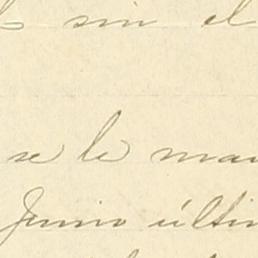 sin el
se le man
Junio últim